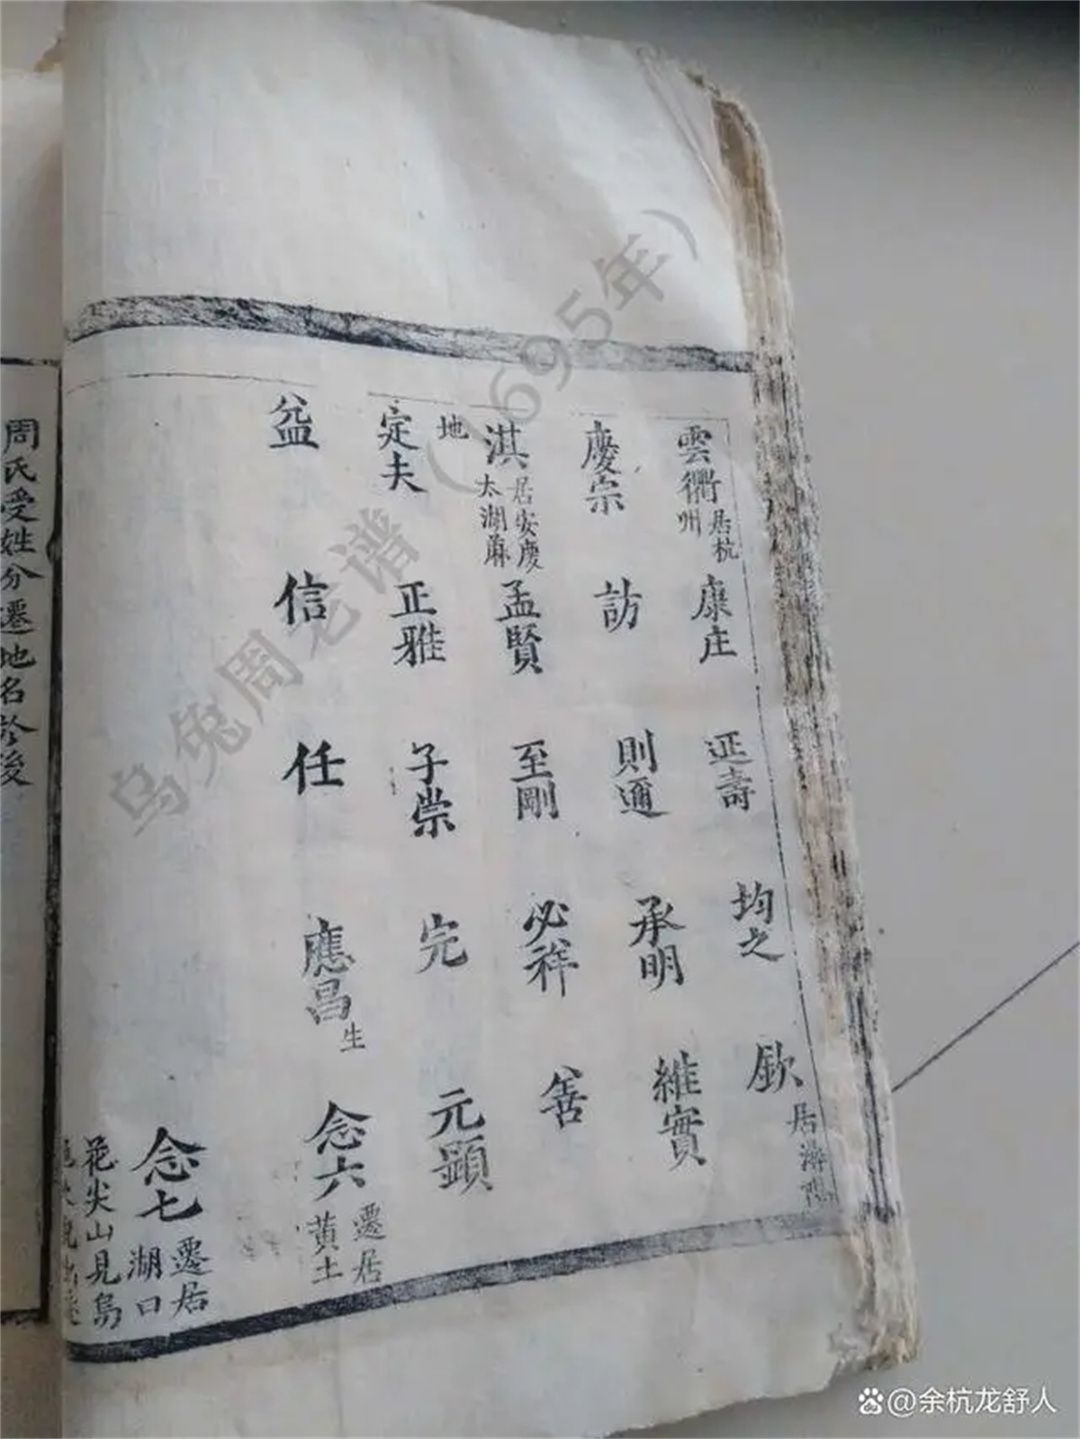 雲衢居杭州
康庄
延壽
均之
欽居
慶宗
訪
則邇
承明
維實
淇居安慶太湖蔴地
孟賢
至剛
必祥
善
定夫
正雅
子崇
完
元顕
益
信
任
應昌生
念六遷居黄土
念七遷居湖口
花尖山見烏
周氏受姓分遷地名於後
乌兔周老谱（1695年）
@余杭龙舒人